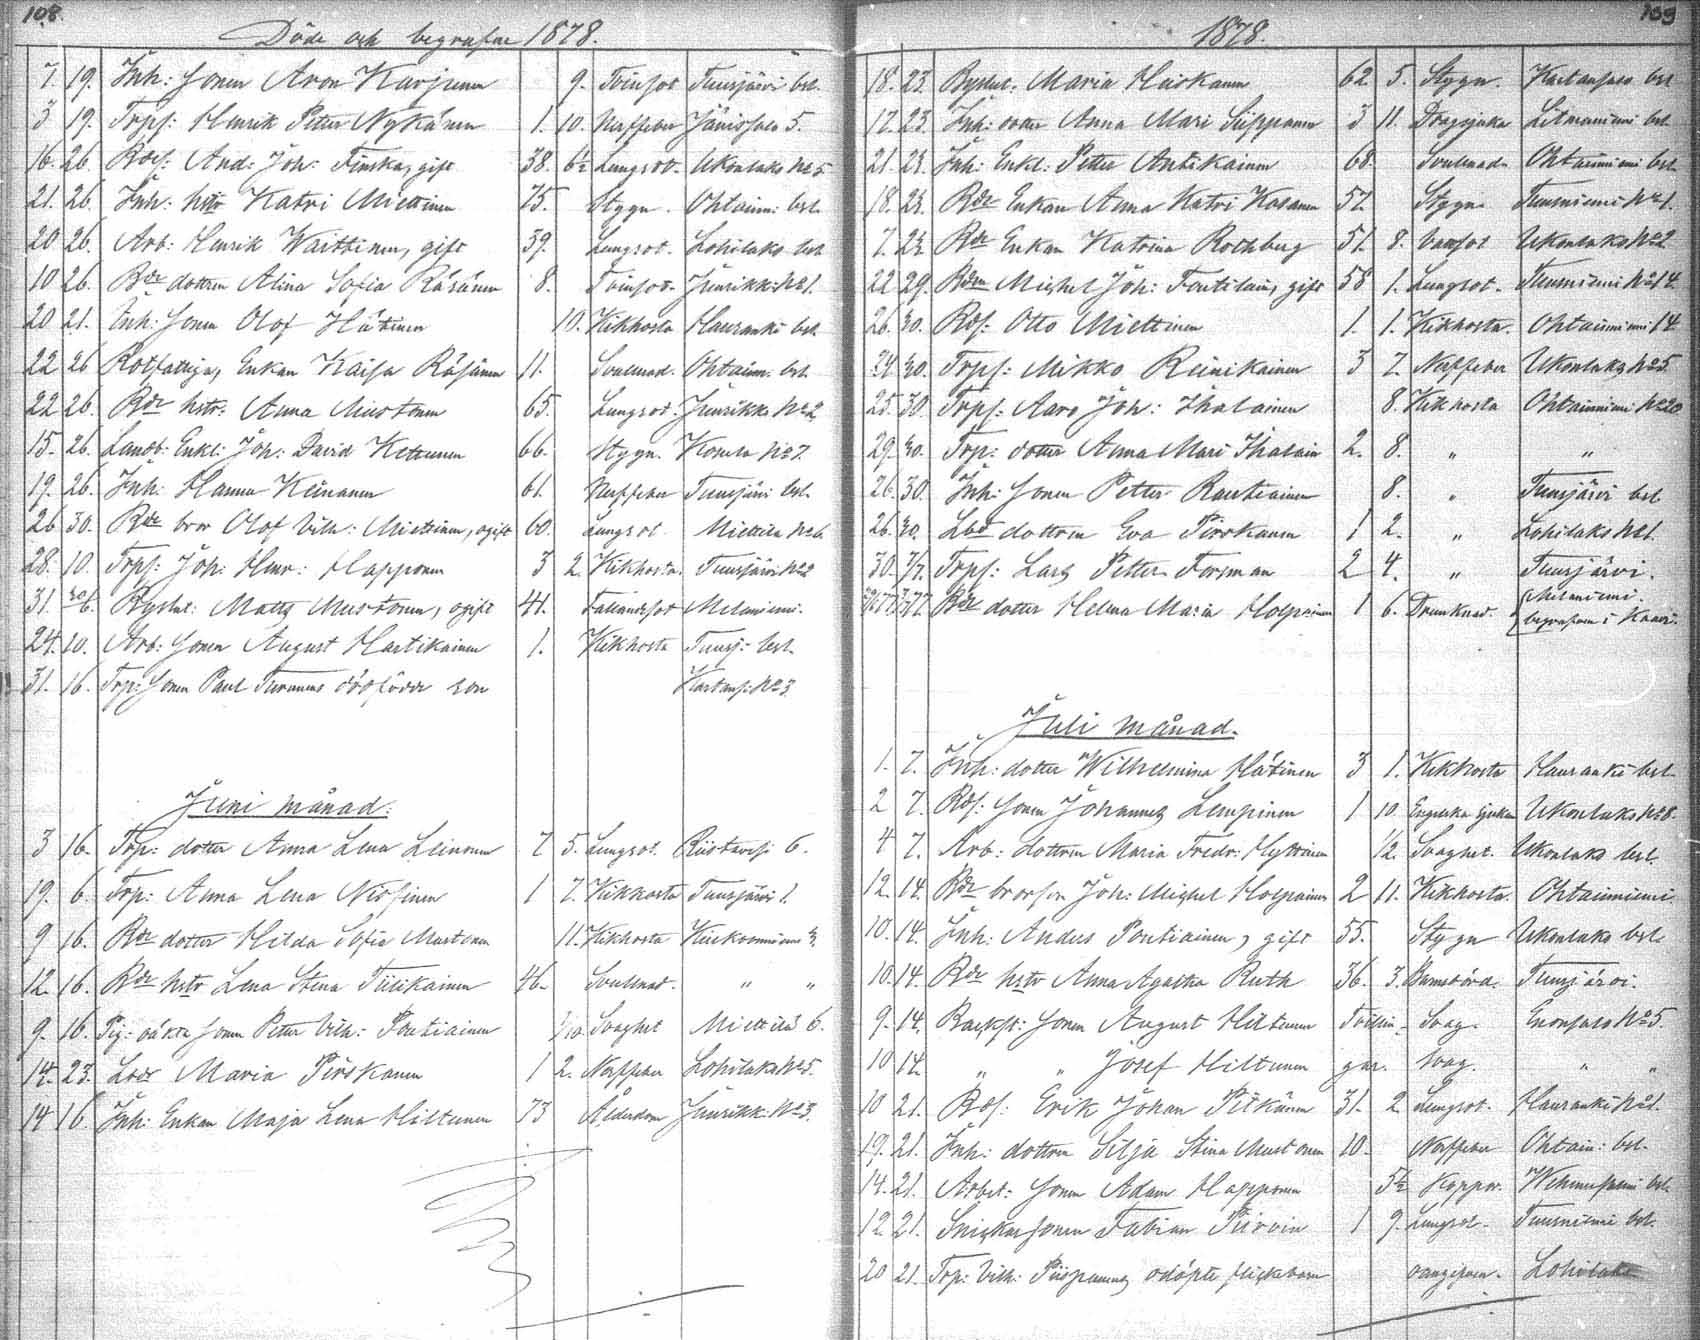 108
Döde och begrafne 1878.
7. 19. Inh: Sonen Aron Karjunen 9. Tvinsot Tuusjärvi bst.
3 19. Torps: Henrik Petter Nykänen 1. 10. Nerffeber Jänissalo 5.
16. 26. And: Joh: gift 38. 6½ Lungsot. Ukonlaks No 5
21. 26. Inh: hstr Katri Miettinen 75. Stygn. Ohtainn: bst.
20 26. Arb: Henrik Waittinen, gift 39. Lungsot. Lohilaks bst
10 26. Bdr dottren Alina Sofia Räsänen 8. Tvinsot. Juurikk: No 1.
20 21. Inh: Sonen Olof Hätinen 10. Kikhosta Hauranki bst.
22 26 Rotfattiga, Enkan Kaisa Räsänen 11. Svulnad. Ohtainn. bst.
22 26. Bdr hstr. Anna Mustonen 65. Lungsot. Juurikka No 2
15. 26. Landb: Enkl: Joh: David Ketunen 66. Stygn. No 7.
19. 26. Inh: Hanna Keinanen 61. Nerffeber Tuusjärvi bst.
26 30. Bdr bror Olof Vilh: Miettinen, ogift 60. Lungsot. Miettilä No 6
28. 10. Torps: Joh: Henr: Happonen 3 2. Kikhosta. Tuusjärvi No 2
31. Bysknl: Matts Mustonen, ogift 41. Fallandesot Melaniemi.
24. 10. Arb: Sonen August Hartikainen 1. Kikhosta Tuusj: bst.
31. 16. Torp: Sonen Paul Turunens dödfödde son Kartansi: No 3.
Juni månad:
3 16. Torp: dotter Anna Lena Leinonen 7 5. Lungsot. 6.
19. 6. Torp: Anna Lena Nissinen 1 7. Kikhosta Tuusjärvi 1.
9 16. Bdr dotter Hilda Sofia Mustonen 11. Kikhosta
12. 16. Bdr hstr Lena Stina Tiilikainen 46. Svulnad. " "
9. 16. Pig: oäkta Sonen Peter Vilh: Pentiainen Svaghet Miettilä 6.
14. 23. Lbdr Maria Pirskanen 1 2. Nerffeber Lohilaks No 5.
14 16. Inh: Enkan Maja Lena Hiltunen 73 Ålderdom Juurikk: No 3.
109
1878.
18. 23. Bysknl: Maria Harkanen 62. 5. Stygn. Kartansalo bst
17. 23. Inh: dotter Anna Mari Siippanen 3 11. Dragsjuka Litmaniemi bst.
21. 23. Inh: Enkl: Petter Antikainen 68. Svulnad. Ohtainniemi bst.
18. 23. Bdr Enkan Anna Katri Kosanen 57. Stygn. Tuusniemi No 1.
7. 23. Bdr Enkan Katrina Rothberg 51. 8. Vattsot Ukonlaks No 2
22 29. Bdn Michel Joh: gift 58 1. Lungsot. Tuusniemi No 14.
26. 30. Bds: Otto Miettinen 1. 1. Kikhosta. Ohtainniemi 14.
24 30. Torps: Mikko Reinikainen 3 7. Nerffeber Ukonlaks No 5.
25. 30. Torps: Aaro Joh: Ihalainen 8. Kikhosta Ohtainniemi No 20
29. 30. Torp: dotter Anna Mari Ihalain 2. 8. " "
26. 30. Inh: Sonen Petter Rautiainen 8. " Tuusjärvi bst
26. 30. Lbd dottren Eva Pirskanen 1 2. " Lohilaks No 1.
30. 7/7. Torps: Lars Petter Forsman 2 4. " Tuusjärvi.
Bdr dotter Helena Maria Holpainen 1 6. Drunknad. Melaniemi. begrafven i Kaavi.
Juli månad.
1. 7. Inh: dotter Wilhelmina Hätinen 3 1. Kikhosta Hauranki bst.
2 7. Bds: Sonen Johannes Lempinen 1 10 Engelska sjukan Ukonlaks No 8.
4 7. Arb: dottren Maria Fredr: Hyttinen 12. Svaghet. Ukonlaks bst.
12. 14. Bdr brorson Joh: Michel Holpainen 2 11. Kikhosta. Ohtainniemi
10. 14. Inh: Anders Pentiainen, gift 55. Stygn Ukonlaks bst.
10. 14. Bdr hstr Anna Agatha Ruth 36. 3. Barnsbörd. Tuusjärvi.
9. 14. Backst: Sonen August Hiltunen Tvillin- Svag. Enonsalo No 5.
10 14. " " Josef Hiltunen gar. Svag. " "
10 21. Bds: Erik Johan Pitkänen 31. 2 Lungsot. Hauranki No 1.
19. 21. Inh: dottren Silja Stina Mustonen 10. Nerffeber Ohtain: bst.
14. 21. Arbet: Sonen Adam Happonen 5½ Koppor. bst.
12. 21. Snickar Sonen Fabian Piirvin 1 9. Lungsot. Tuusniemi bst.
20 21. Torp: Vilh: odöpte flickbarn Lohilaks